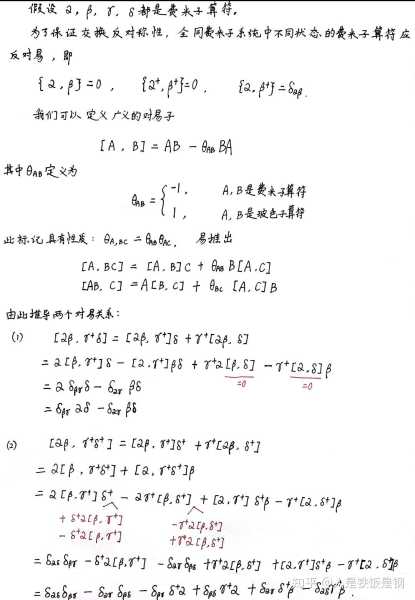 假设 2, β, γ, δ 都是费米子算符.
为了保证交换反对称性, 全同费米子系统中不同状态的费米子算符应
反对易, 即
{2, β}=0 , {2⁺, β⁺}=0 , {2, β⁺}=δ₂β.
我们可以定义广义的对易子
[A, B] = AB - θ_AB BA
其中 θ_AB 定义为
θ_AB = { -1, A, B是费米子算符
1, A, B是玻色子算符
此标记具有性质: θ_A,BC = θ_AB θ_AC. 易推出
[A, BC] = [A, B]C + θ_AB B[A, C]
[AB, C] = A[B, C] + θ_BC [A, C]B
由此推导两个对易关系:
(1) [2β, γ⁺δ] = [2β, γ⁺]δ + γ⁺[2β, δ]
= 2[β, γ⁺]δ - [2, γ⁺]βδ + γ⁺2[β, δ] - γ⁺[2, δ]β
=0 =0
= 2 δβγ δ - δ₂γ βδ
= δβγ 2δ - δ₂γ βδ
(2) [2β, γ⁺δ⁺] = [2β, γ⁺]δ⁺ + γ⁺[2β, δ⁺]
= 2[β, γ⁺δ⁺] + [2, γ⁺δ⁺]β
= 2[β, γ⁺]δ⁺ - 2γ⁺[β, δ⁺] + [2, γ⁺]δ⁺β - γ⁺[2, δ⁺]β
+ δ⁺2[β, γ⁺] - γ⁺2[β, δ⁺]
- δ⁺2[β, γ⁺] + γ⁺2[β, δ⁺]
= δ₂δ δβγ - δ⁺2[β, γ⁺] - δ₂γ δβδ + γ⁺2[β, δ⁺] + [2, γ⁺]δ⁺β - γ⁺[2, δ⁺]β
= δ₂δ δβγ - δ₂γ δβδ - δβγ δ⁺2 + δβδ γ⁺2 + δ₂γ δ⁺β - δ₂δ γ⁺β.
知乎